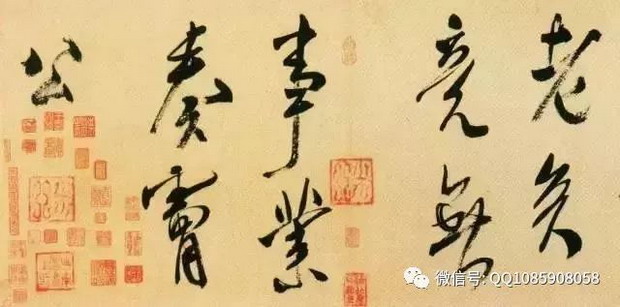 老矣
竟無
事業
奏膚
公
微信号: QQ1085908058